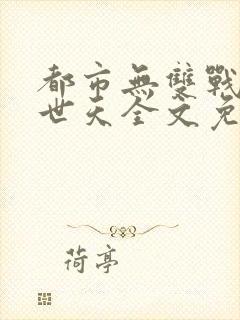 都市無雙戰
世天全文免
荷亭